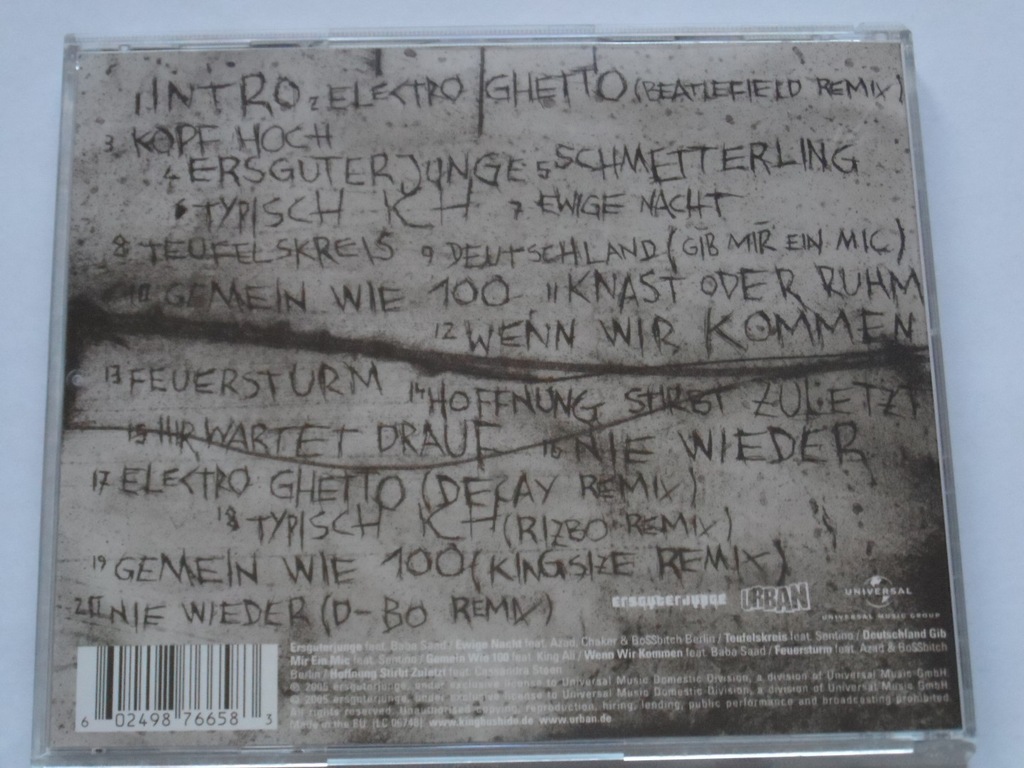 1 INTRO 2 ELECTRO GHETTO (BEATLEFIELD REMIX)
3 KOPF HOCH
4 ERSGUTERJUNGE 5 SCHMETTERLING
6 TYPISCH ICH 7 EWIGE NACHT
8 TEUFELSKREIS 9 DEUTSCHLAND (GIB MIR EIN MIC)
10 GEMEIN WIE 100 11 KNAST ODER RUHM
12 WENN WIR KOMMEN
13 FEUERSTURM 14 HOFFNUNG STIRBT ZULETZT
15 IHR WARTET DRAUF 16 NIE WIEDER
17 ELECTRO GHETTO (DECAY REMIX)
18 TYPISCH ICH (RIZBO REMIX)
19 GEMEIN WIE 100 (KINGSIZE REMIX)
20 NIE WIEDER (D-BO REMIX)
ersguterjunge URBAN UNIVERSAL
UNIVERSAL MUSIC GROUP
Ersguterjunge feat. Baba Saad / Ewige Nacht feat. Azad, Chaker & BoSSbitch Berlin / Teufelskreis feat. Sentino / Deutschland Gib
Mir Ein Mic feat. Sentino / Gemein Wie 100 feat. King Ali / Wenn Wir Kommen feat. Baba Saad / Feuersturm feat. Azad & BoSSbitch
Berlin / Hoffnung Stirbt Zuletzt feat. Cassandra Steen
℗ 2005 ersguterjunge, under exclusive license to Universal Music Domestic Division, a division of Universal Music GmbH
© 2005 ersguterjunge, under exclusive license to Universal Music Domestic Division, a division of Universal Music GmbH
All rights reserved. Unauthorised copying, reproduction, hiring, lending, public performance and broadcasting prohibited.
Made in the EU. (LC 06748) www.kingbushido.de www.urban.de
6 02498 76658 3